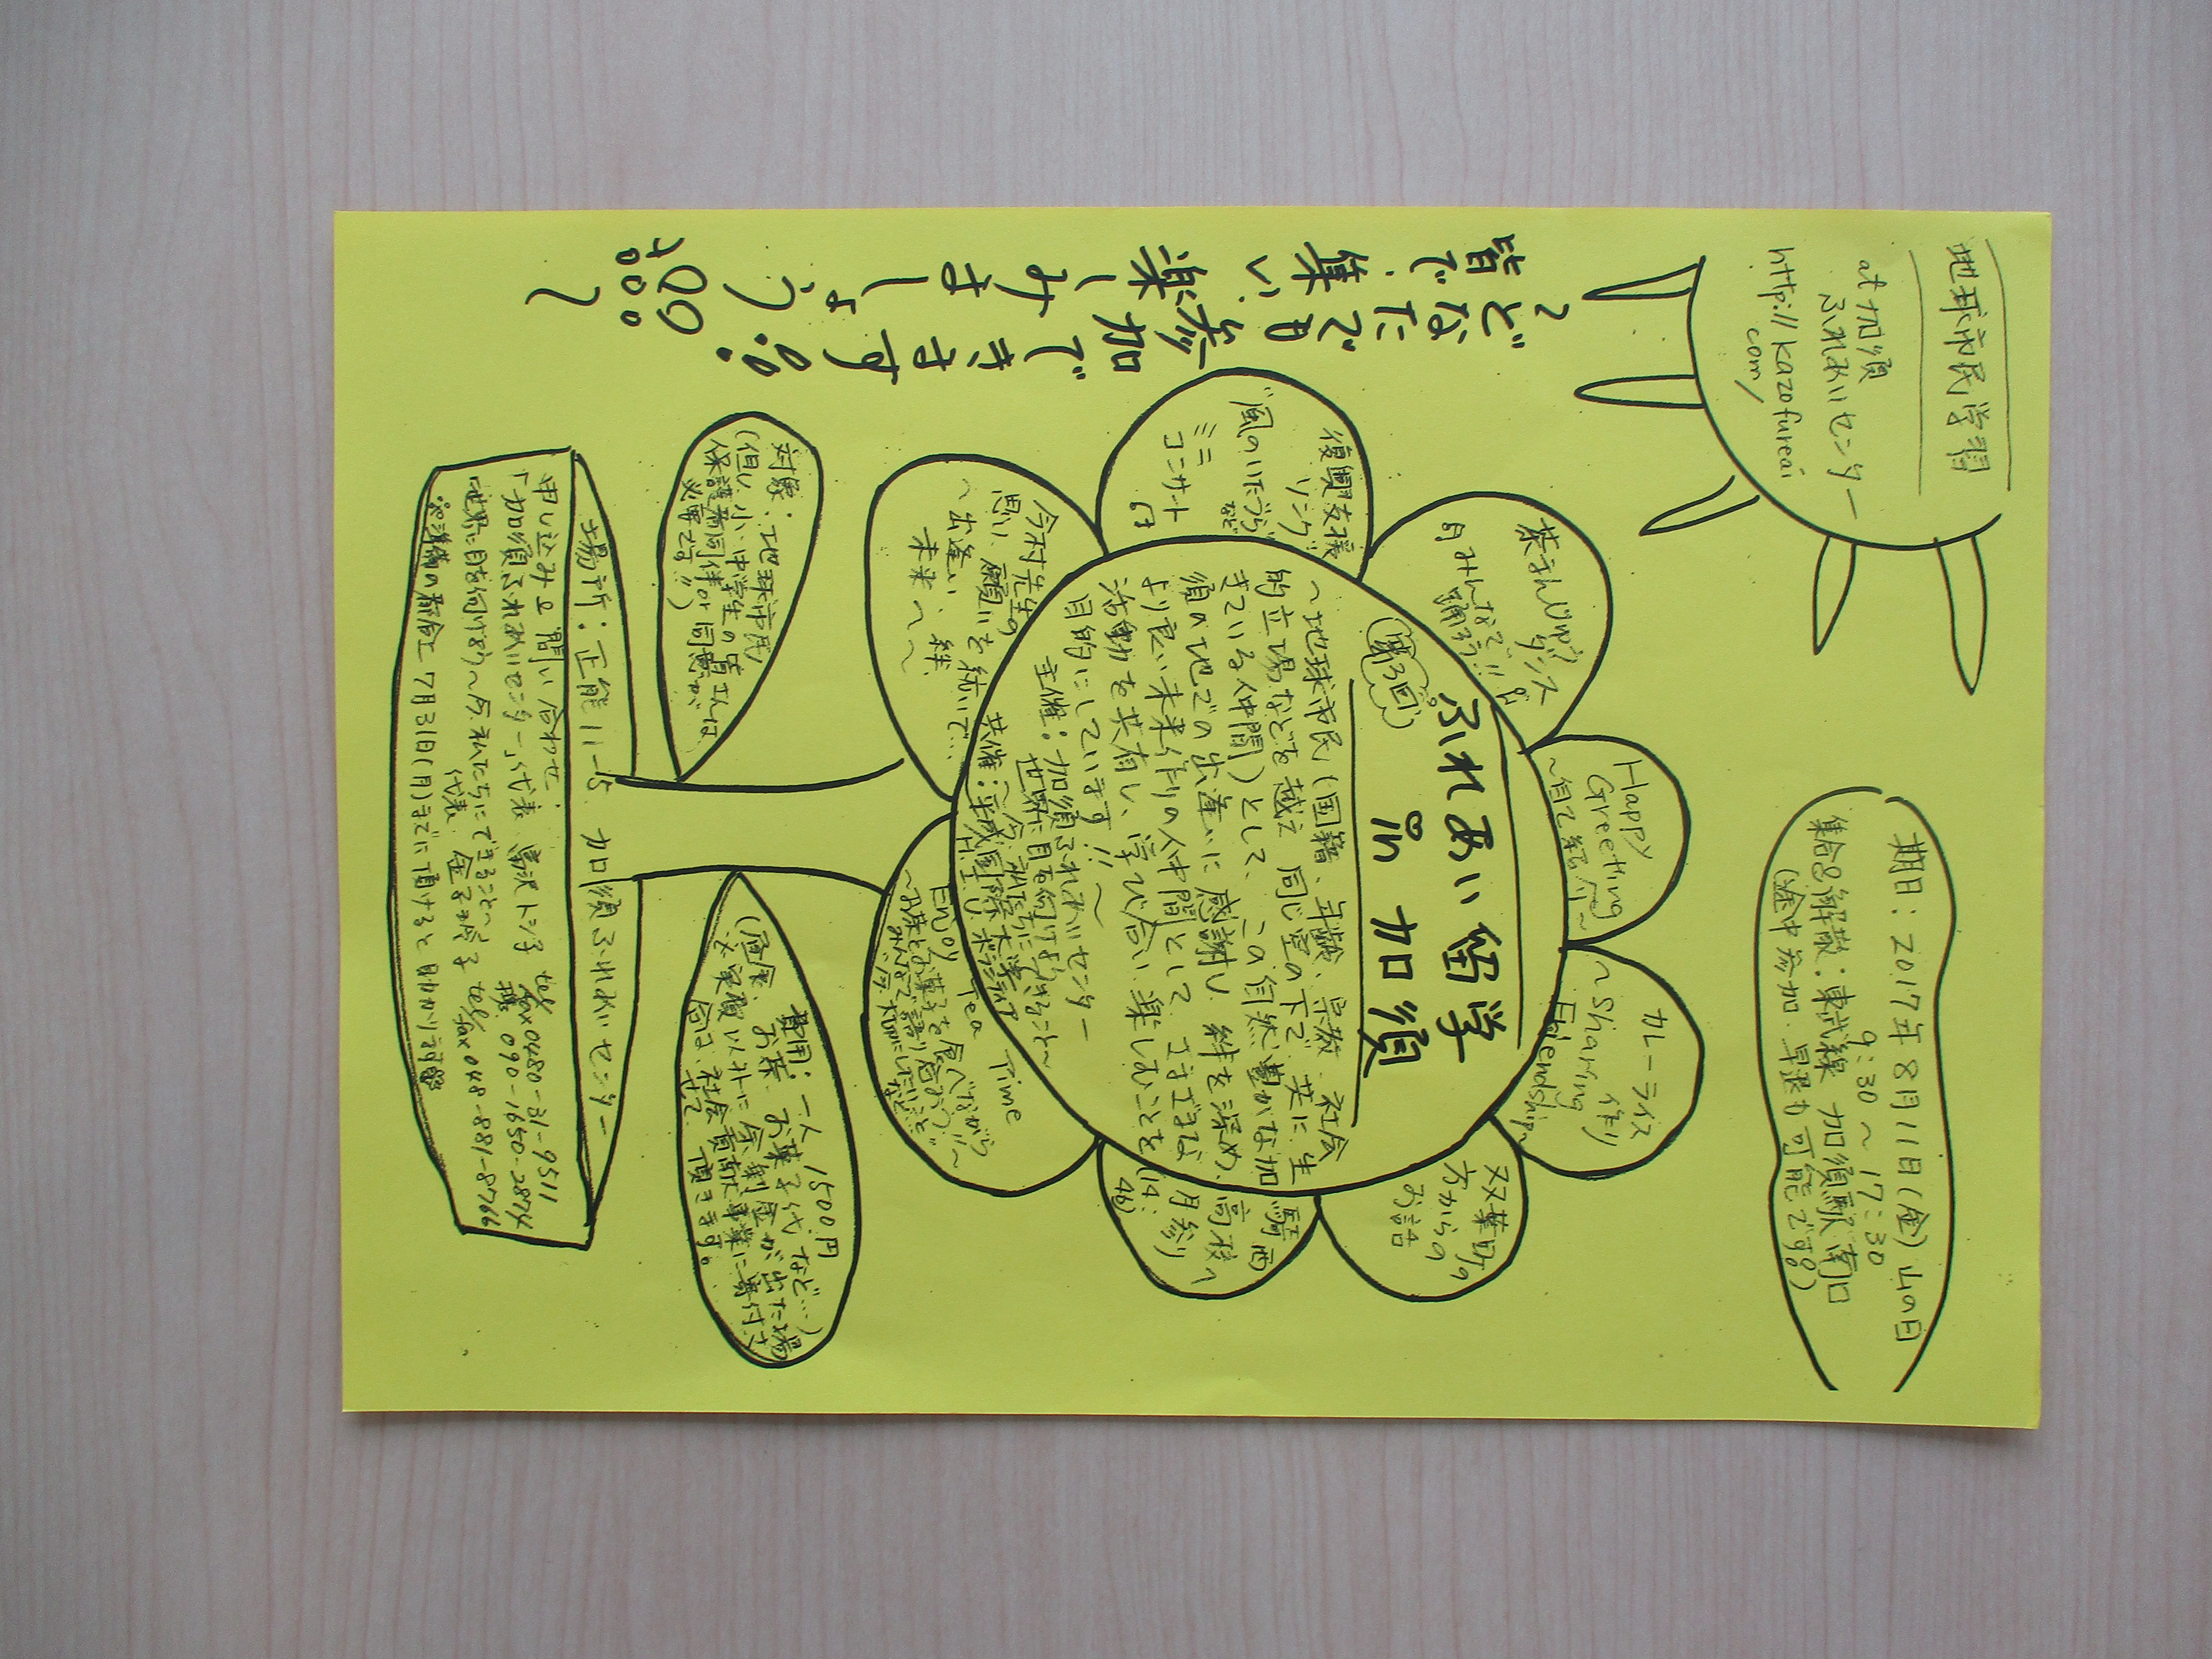 地球市民学習
at 加須
ふれあいセンター
http://kazofureai
com/
期日：2017年8月11日(金)山の日
9：30～17：30
集合解散：東武線 加須駅南口
(途中参加・早退も可能です。)
皆で集い楽しみましょう
～どなたでも参加できます。～
第3回
ふれあい留学
in 加須
～地球市民(国籍、年齢、宗教、社会
的立場などを越え 同じ空の下で 共に生
きている仲間)として、この自然豊かな加
須の地での出逢いに感謝し 絆を深め、
より良い未来作りの仲間として さまざまな
活動を共有し、学び合い 楽しむことを
目的にしています!!～
主催：加須ふれあいセンター
世界に目を向けよう
～今、私たちにできること～
共催：平成国際大学
H.I.U.ボランティア
Happy
Greeting
～皆で行こう～
カレーライス作り
～Sharing
Friendship～
双葉町の
方からの
お話
騎西
高校へ
月参り
(14:
46)
Enjoy Tea Time
～お茶とお菓子を食べながら
みんなで語り合おう!!～
今村先生の
思い、願いを紡いで…
～出逢い 絆
未来へ～
復興支援
ソング
"風のいたずら"など
ミニ
コンサート
茶和Up!
ダンス
みんなで踊ろう!!
対象：地球市民
(但し、小・中学生の場合は
保護者同伴or同意が
必要です。)
費用：一人1500円
(昼食、お茶、お菓子代など…)
※実費以外に余剰金が出た場
合は、社会貢献事業に寄付させて
頂きます。
場所：正能11-5 加須ふれあいセンター
申し込み・問い合わせ：
「加須ふれあいセンター」代表 トシ子 tel fax 0480-31-9511
携 090-1650-2874
世界に目を向けよう～今、私たちにできること～
代表 金子 tel fax 048-881-8766
※準備の都合上 7月31日(月)までに頂けると助かります。